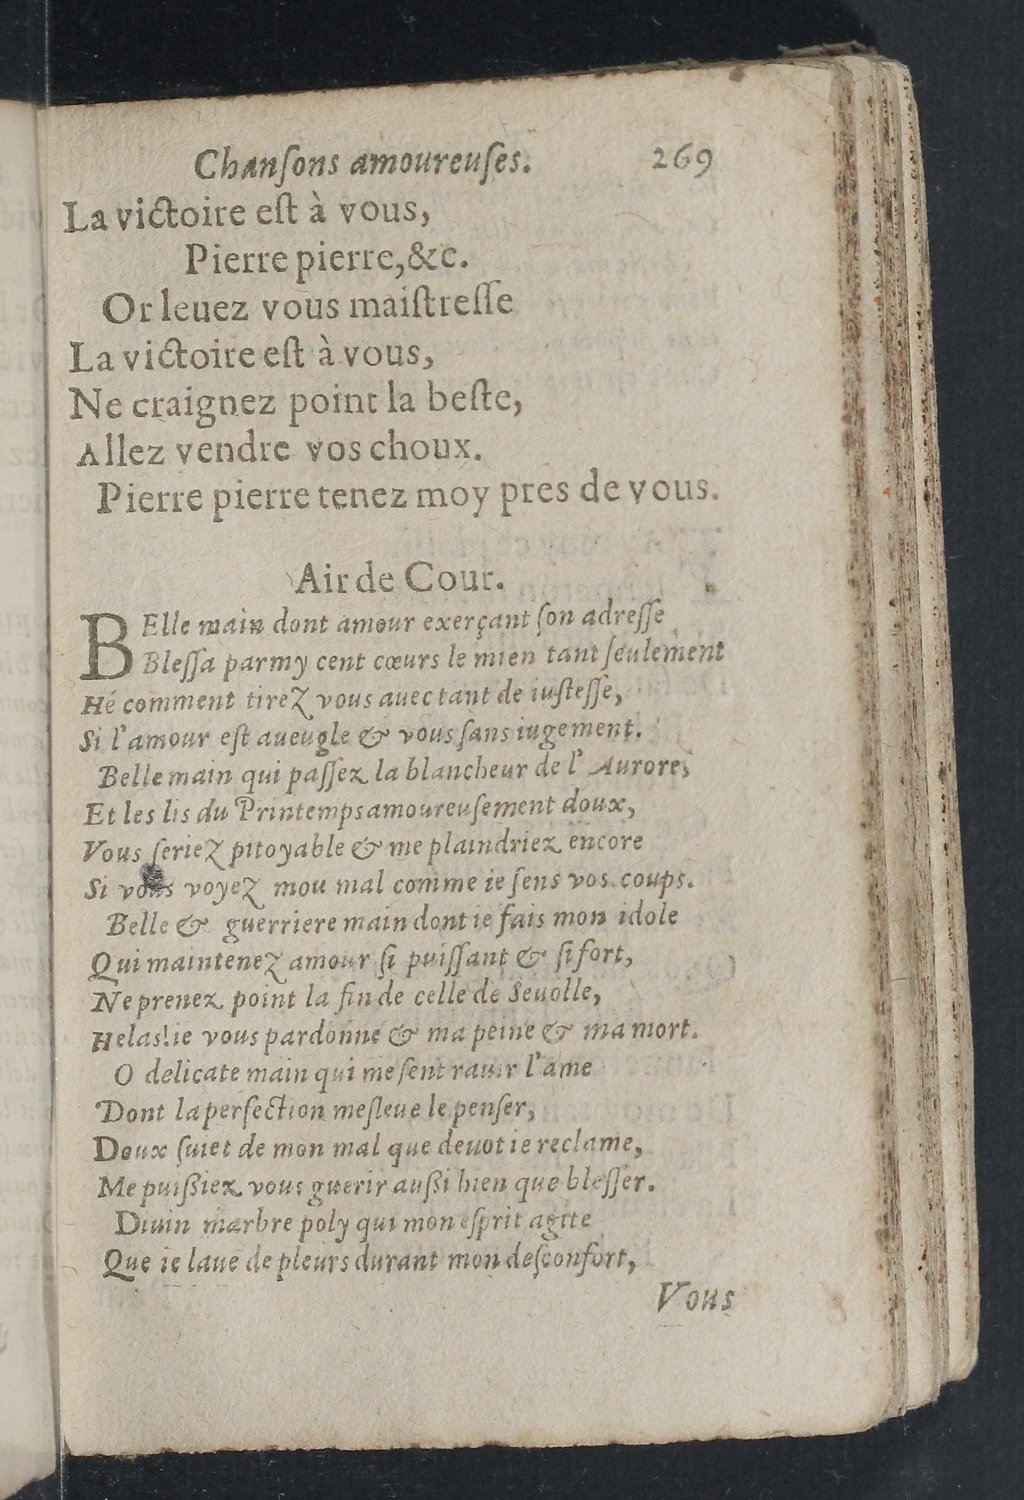 Chanſons amoureuſes. 269
La victoire eſt à vous,
Pierre pierre, &c.
Or leuez vous maiſtreſſe
La victoire eſt à vous,
Ne craignez point la beſte,
Allez vendre vos choux.
Pierre pierre tenez moy pres de vous.
Air de Cour.
BElle main dont amour exerçant ſon adreſſe
Bleſſa parmy cent cœurs le mien tant ſeulement
Hé comment tirez vous auec tant de iuſteſſe,
Si l'amour eſt aueugle & vous ſans iugement.
Belle main qui paſſez la blancheur de l'Aurore,
Et les lis du Printemps amoureuſement doux,
Vous ſeriez pitoyable & me plaindriez encore
Si vous voyez mou mal comme ie ſens vos coups.
Belle & guerriere main dont ie fais mon idole
Qui maintenez amour ſi puiſſant & ſi fort,
Ne prenez point la fin de celle de Seuolle,
Helas! ie vous pardonne & ma peine & ma mort.
O delicate main qui me ſent rauir l'ame
Dont la perfection meſleue le penſer,
Doux ſuiet de mon mal que deuot ie reclame,
Me puißiez vous guerir außi bien que bleſſer.
Diuin marbre poly qui mon eſprit agite
Que ie laue de pleurs durant mon deſconfort,
Vous